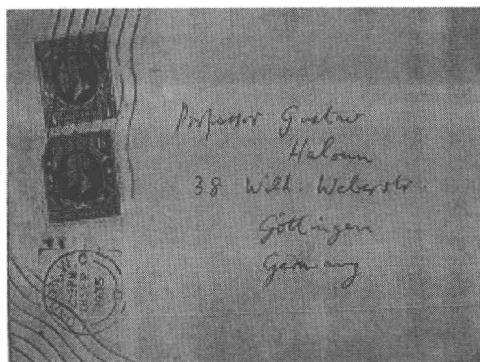 Professor Gustav
Haloun
38 Wilh. Weberstr.
Göttingen
Germany